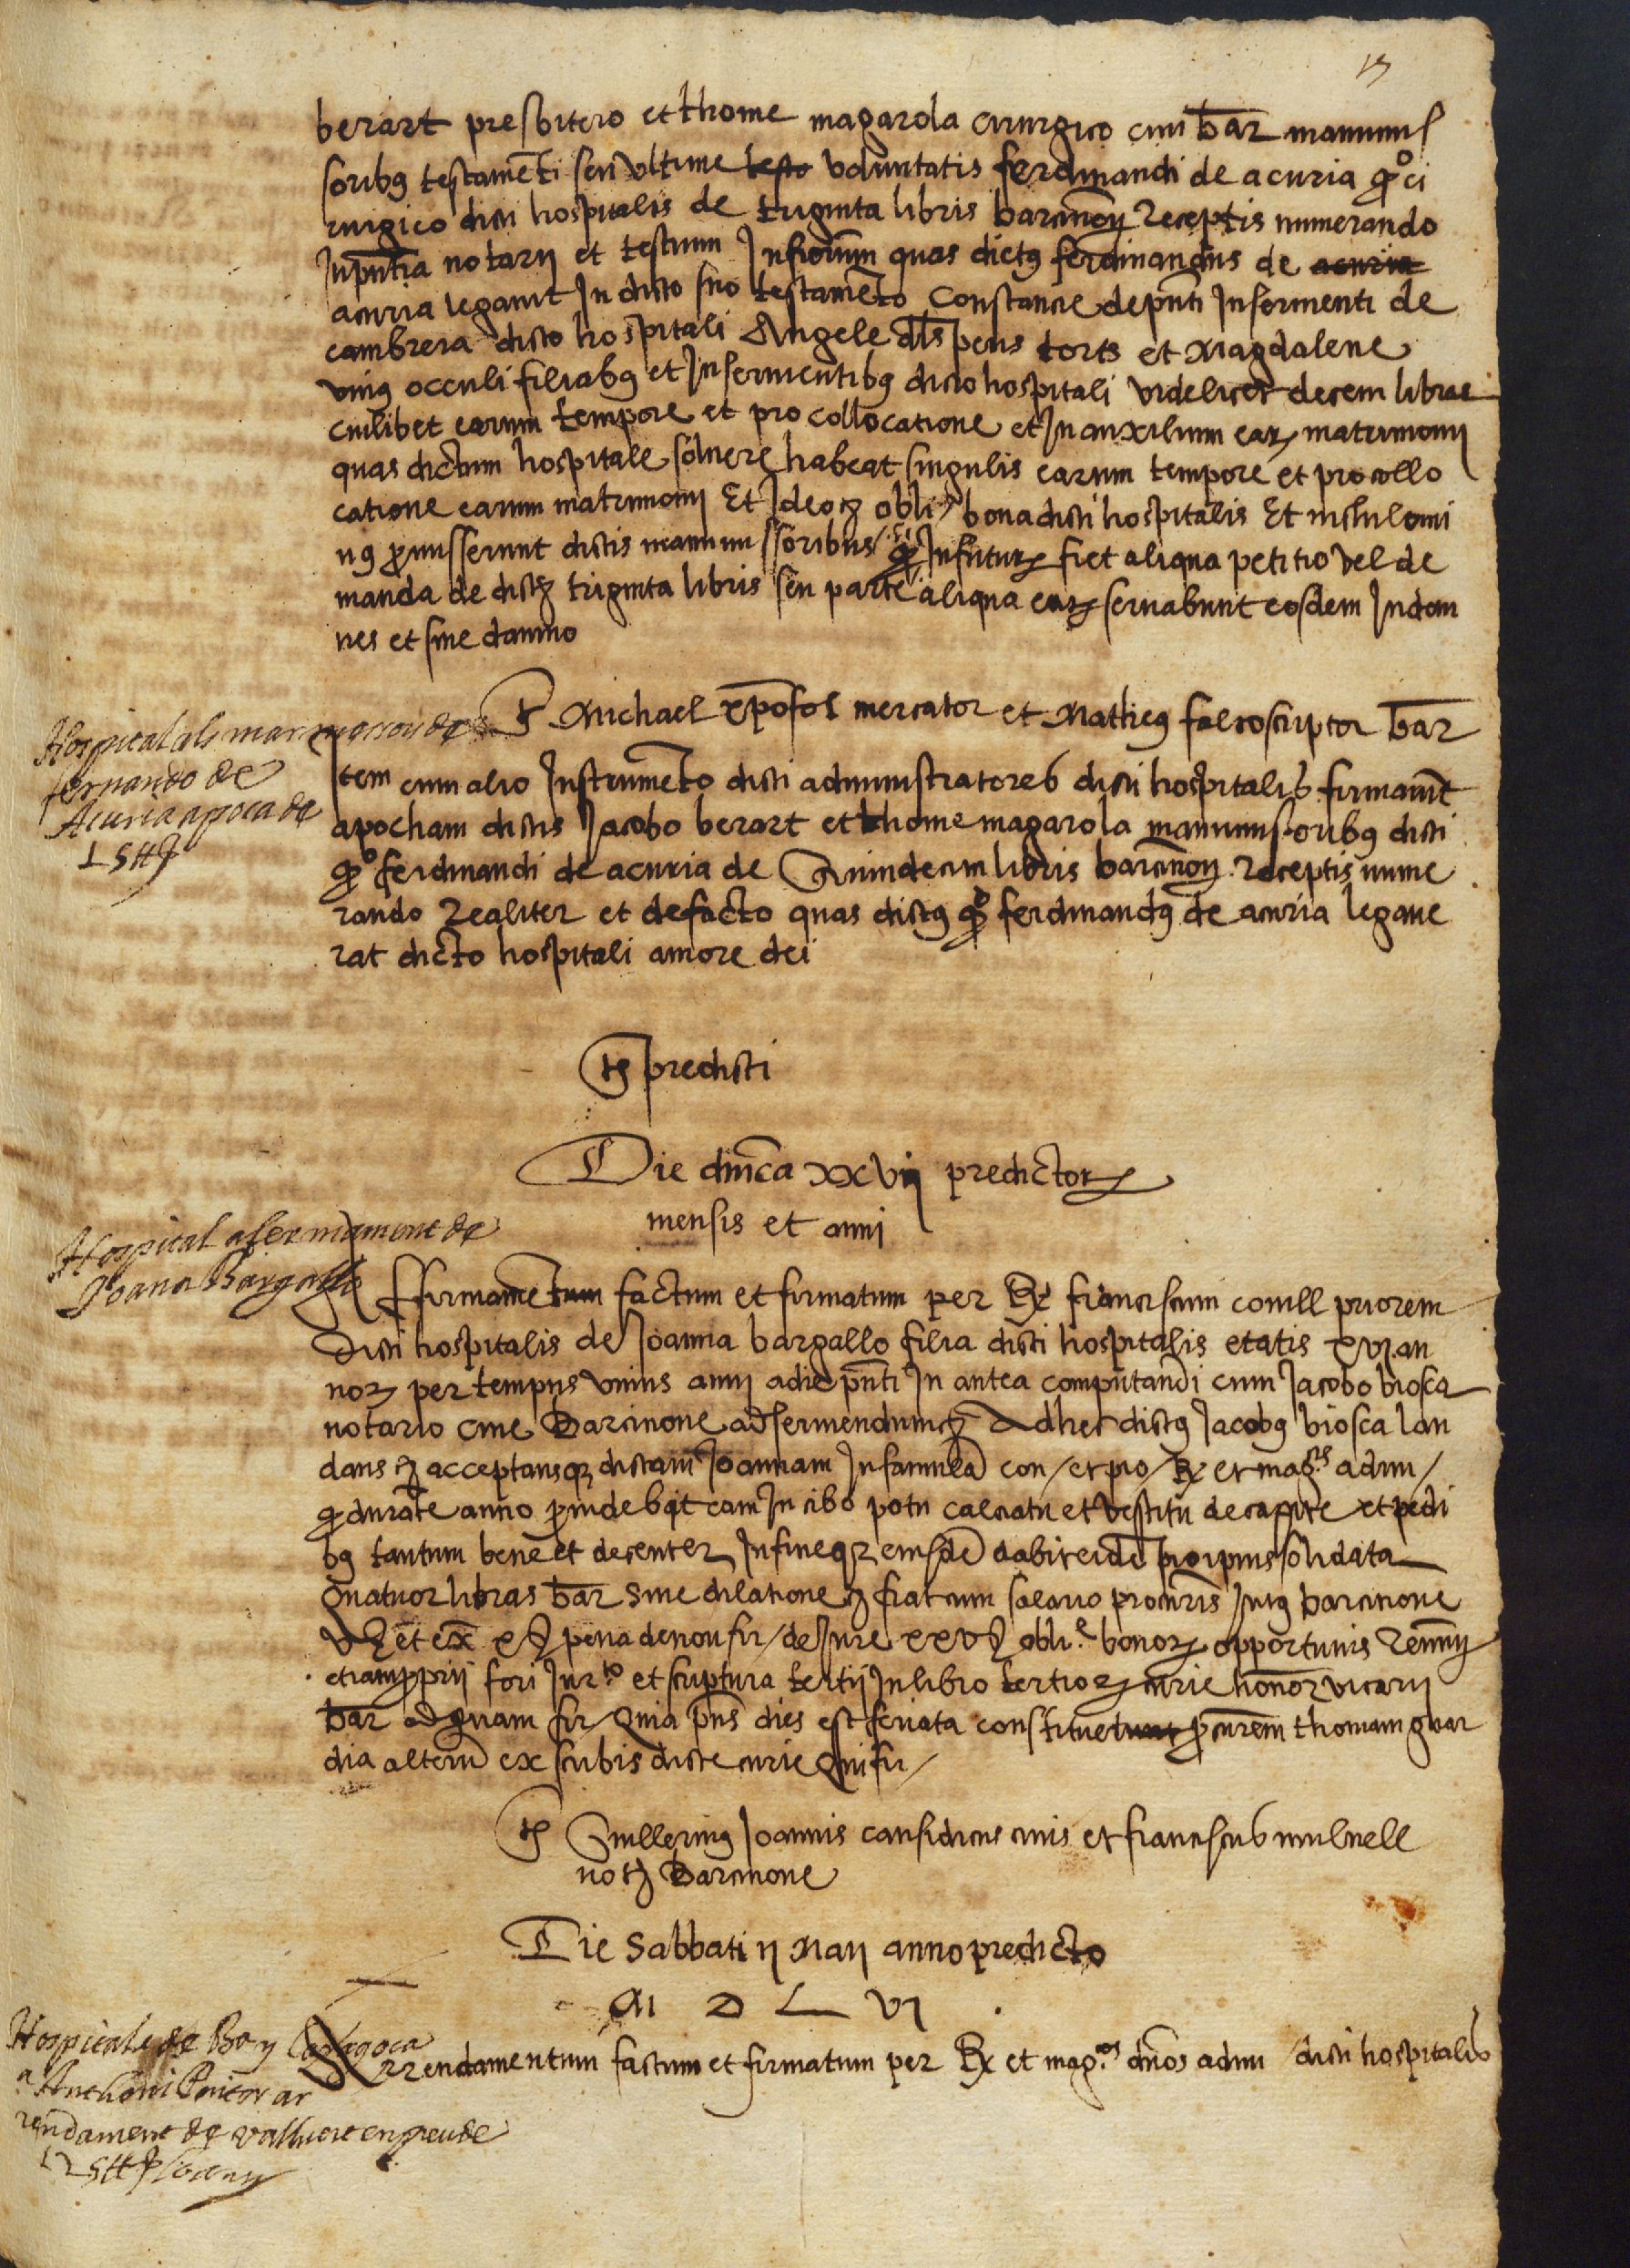 berart presbitero et thome magarola cirurgico civi bar manumis
soribus testamenti seu ultime testo voluntatis ferdinandi de acuria qº ci
rurgico dicti hospitalis de triginta libris barcinon receptis numerando
In pntia notarii et testium Infrorum quas dictus ferdinandus de acuria
acuria legavit In dicto suo testamento Constancie de pnti Inservienti de
cambrera dicto hospitali Angele als peus torts et Magdalene
unius occuli filiabus et Inservientibus dicto hospitali videlicet decem libras
cuilibet earum tempore et pro collocatione et In auxilium ear matrimonii
quas dictum hospitale solvere habeat singulis earum tempore et pro collo
catione earum matrimonii Et Ideo obli bona dicti hospitalis Et nichilomi
nus promisserunt dictis manumissoribus si Infutur fiet aliqua petitio vel de
manda de dictis triginta libris seu parte aliqua ear servabunt eosdem Indem
nes et sine damno
Hospital als marmessors de
fernando de
Acuria apoca de
15 ₶
Ts Michael xpofol mercator et Mattheus falco scriptor bar
Item cum alio Instrumento dicti administratores dicti hospitalis firmavit
apocham dictis Jacobo berart et thome magarola manumissoribus dicti
qº ferdinandi de acuria de Quindecim libris barcinon receptis nume
rando realiter et de facto quas dictus qº ferdinandus de acuria legave
rat dicto hospitali amore dei
Ts predicti
Die dnica xxvi predictor
mensis et anni
Hospital afermament de
Joana Bargallo
Ffirmamentum factum et firmatum per Rx franciscum conill priorem
dicti hospitalis de Joanna bargallo filia dicti hospitalis etatis xvi an
nor per tempus unius anni a die pnti In antea computandi cum Jacobo biosca
notario cive Barcinone ad serviendum Ad hec dictus Jacobus biosca lau
dans acceptansque dictam Joannam In famulam con / et pro / Rx et mag.cis adm /
q durate anno providebit eam In cibo potu calciatu et vestitu de capite et pedi
bus tantum bene et decenter In fineque eiusde dabit eidem pro ipius solidata
Quatuor libras bar sine dilatione fiat cum salario procuris Intus barcinone
v et ex x pena de non fir / de Jure xxv obli.e bonor opportunis renun
etiam proprii fori Jur.to et scriptura tertii In libro tertior curie honor vicarii
bar ad quam fir / Quia pns dies est feriata constituetunt procurem thomam guar
dia alterum ex scribis dicte curie Qui fir /
Ts Guillermus Joannis causidicus civis et franciscus mulnell
not Barcinone
Die Sabbati ii Maii anno predicto
M D L VI
Hospitals de Bo y
a Anthoni Pintor ar
rendament de
Arrendamentum factum et firmatum per Rx et mag.cos dnos adm / dicti hospitalis